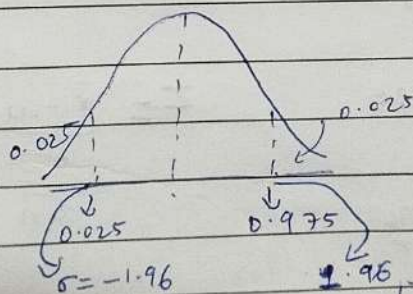 0.025 0.025
0.025 0.975
σ = -1.96 1.96